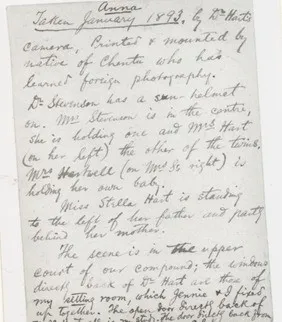 Anna
Taken January 1893, by Dr Hart's
camera, Printed & mounted by
native of Chentu who has
learned foreign photography.
Dr Stevenson has a sun helmet
on. Mrs Stevenson is in the centre,
she is holding one and Mrs Hart
(on her left) the other of the twins.
Mrs Hartwell (on Mrs S's right) is
holding her own baby.
Miss Stella Hart is standing
to the left of her father and partly
behind her mother.
The scene is in the upper
court of our compound; the windows
directly back of Dr Hart are those of
my sitting room, which Jennie & I fixed
up together. The open door directly back of